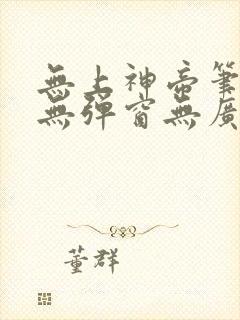 無上神帝筆
無彈窗無廣
董群